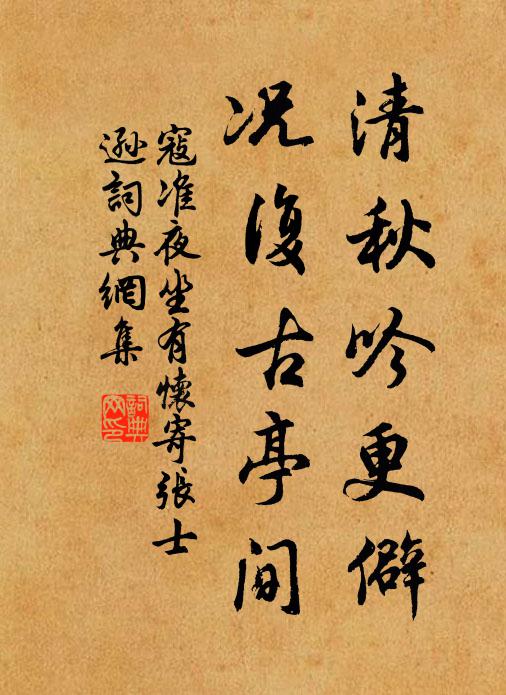 清秋吟更僻
况復古亭間
寇准夜坐有懷寄張士
遜詞典網集
詞典網印